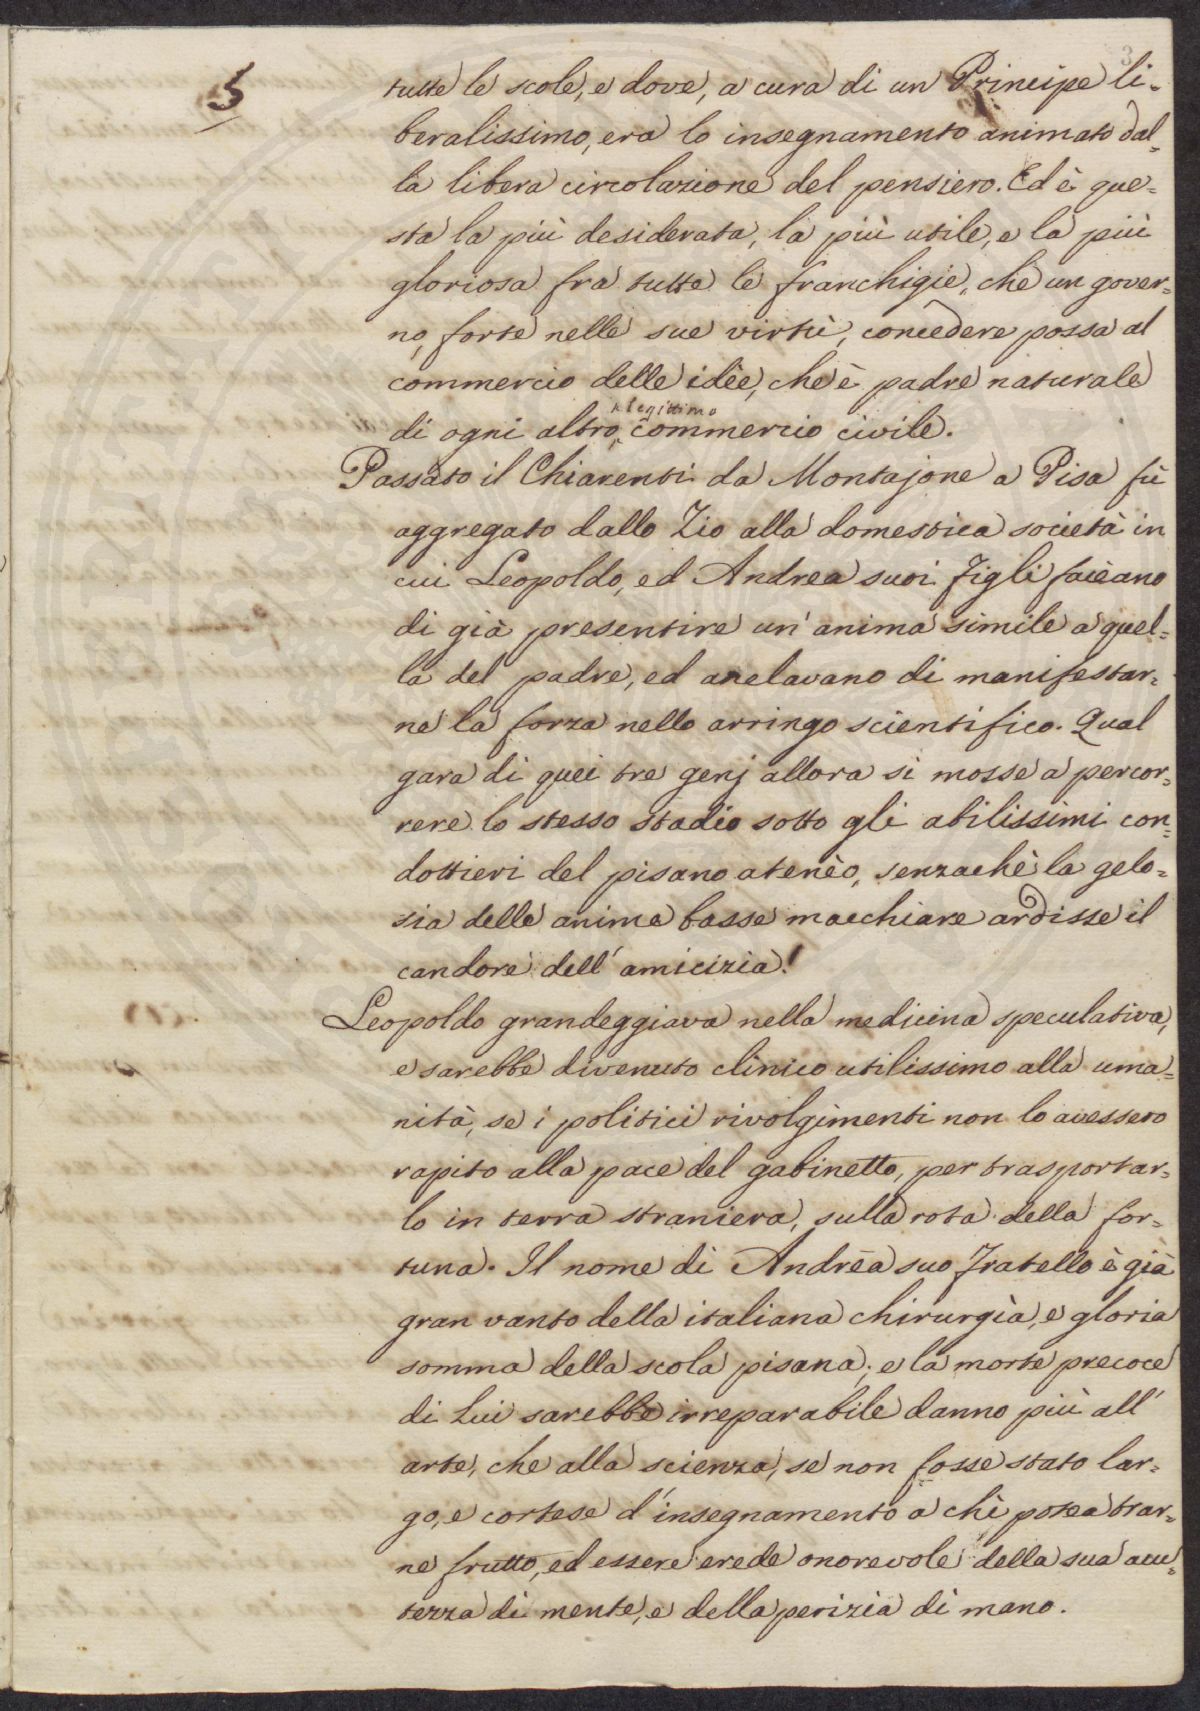 3
5
tutte le scole, e dove, a cura di un Principe li=
beralissimo, era lo insegnamento animato dal=
la libera circolazione del pensiero. Ed è que=
sta la più desiderata, la più utile, e la più
gloriosa fra tutte le franchigie, che un gover=
no, forte nelle sue virtù, concedere possa al
commercio delle idèe, che è padre naturale
legittimo
di ogni altro commercio civile.
Passato il Chiarenti da Montajone a Pisa fù
aggregato dallo Zio alla domestica società in
cui Leopoldo, ed Andrea suoi Figli facèano
di già presentire un' anima simile a quel=
la del padre, ed anelavano di manifestar=
ne la forza nello arringo scientifico. Qual
gara di quei tre genj allora si mosse a percor=
rere lo stesso stadio sotto gli abilissimi con=
dottieri del pisano atenèo, senzachè la gelo=
sia delle anime basse macchiare ardisse il
candore dell' amicizia!
Leopoldo grandeggiava nella medicina speculativa,
e sarebbe divenuto clinico utilissimo alla uma=
nità, se i politici rivolgimenti non lo avessero
rapito alla pace del gabinetto, per trasportar=
lo in terra straniera, sulla rota della for=
tuna. Il nome di Andrèa suo Fratello è già
gran vanto della italiana chirurgìa, e gloria
somma della scola pisana; e la morte precoce
di Lui sarebbe irreparabile danno più all'
arte, che alla scienza, se non fosse stato lar=
go, e cortese d' insegnamento a chì potea trar=
ne frutto, ed essere erede onorevole della sua acu=
tezza di mente, e della perizia di mano.